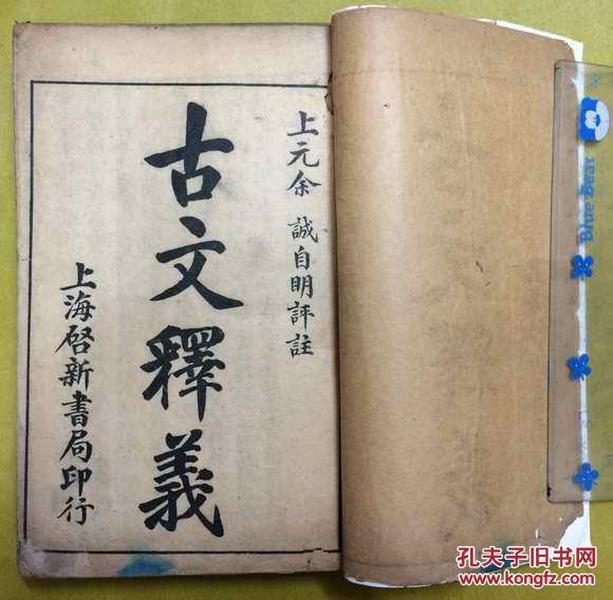 上元余 誠自明評註
古文釋義
上海啓新書局印行
Blue Bear
孔夫子旧书网
www.kongfz.com